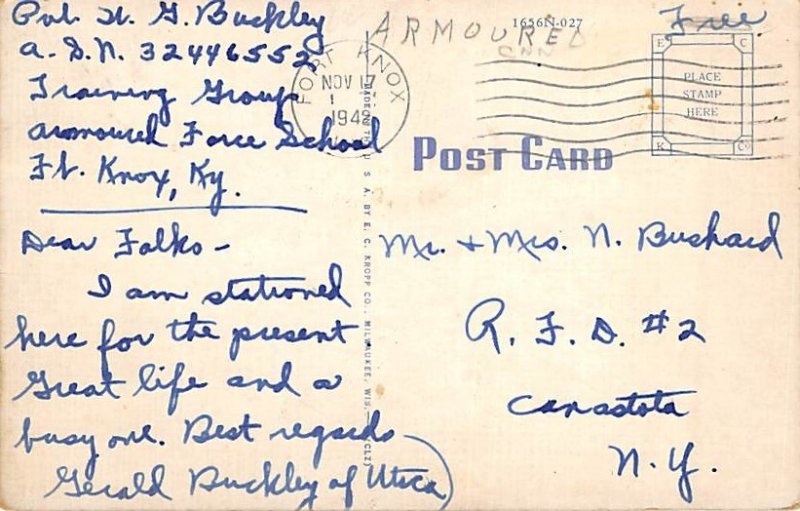 Pvt. W. G. Buckley
A.S.N. 32446552
Training Group
Armoured Force School
Ft. Knox, Ky.
Dear Folks -
I am stationed
here for the present
Great life and a
busy one. Best regards
Gerald Buckley of Utica
ARMOURED
1656N-027
Free
FORT KNOX
NOV 17
1942
PLACE
STAMP
HERE
E C
K Co
POST CARD
U. S. A. BY E. C. KROPP CO., MILWAUKEE, WIS.
Mr. + Mrs. N. Bushard
R. F. D. #2
Canastota
N.Y.